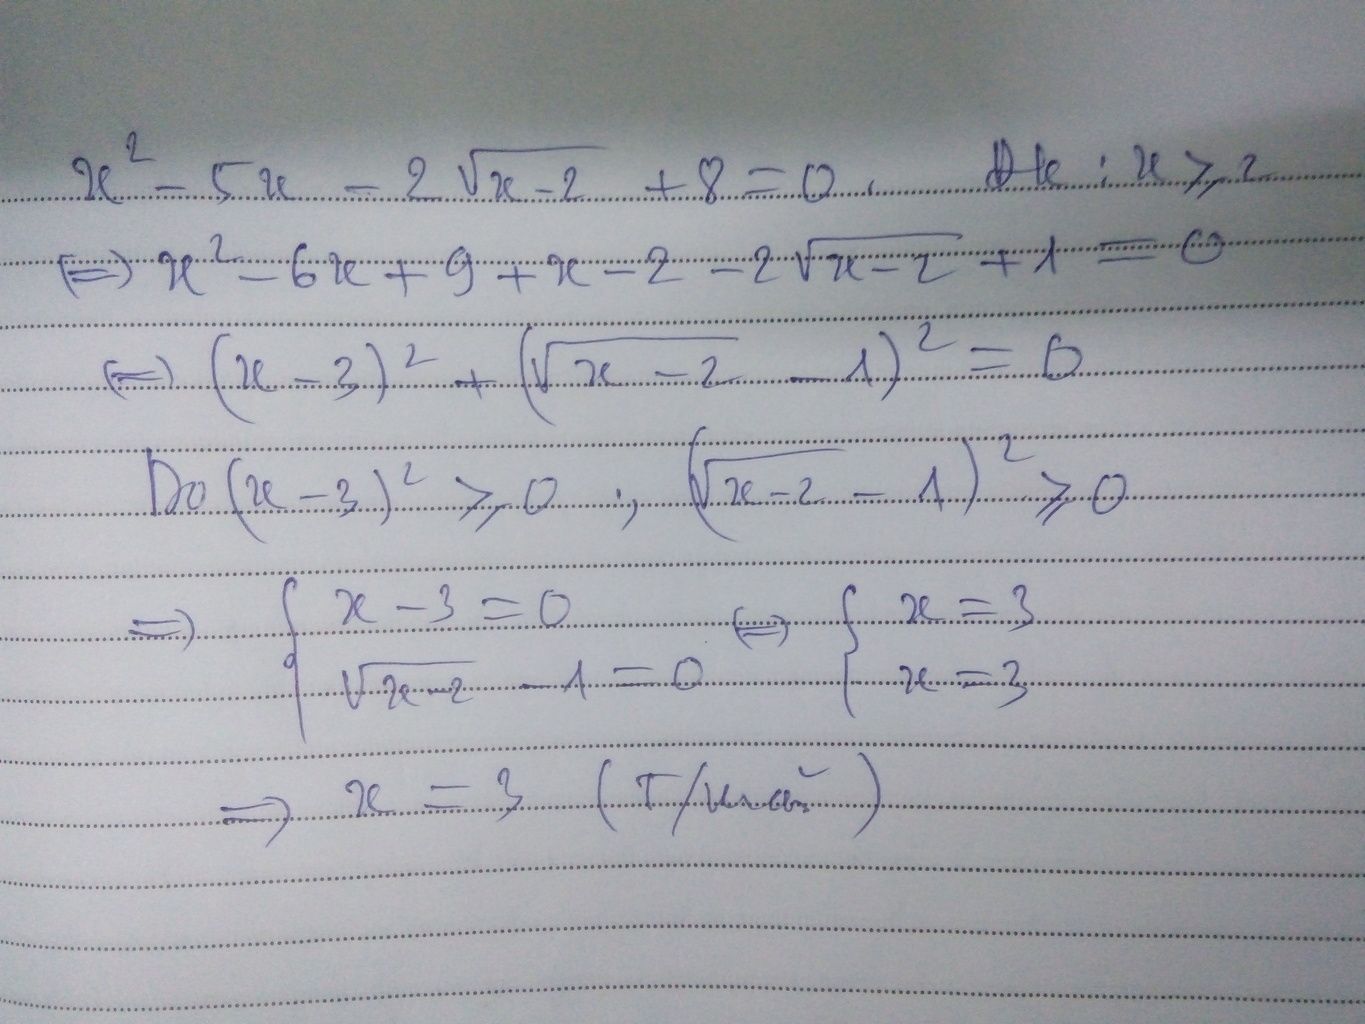 x² - 5x - 2√(x-2) + 8 = 0. Đk : x ⩾ 2
⇔ x² - 6x + 9 + x - 2 - 2√(x-2) + 1 = 0
⇔ (x - 3)² + (√(x-2) - 1)² = 0
Do (x - 3)² ⩾ 0 ; (√(x-2) - 1)² ⩾ 0
⇒ { x - 3 = 0 ⇔ { x = 3
√(x-2) - 1 = 0 x = 3
⇒ x = 3 (T/mãn)